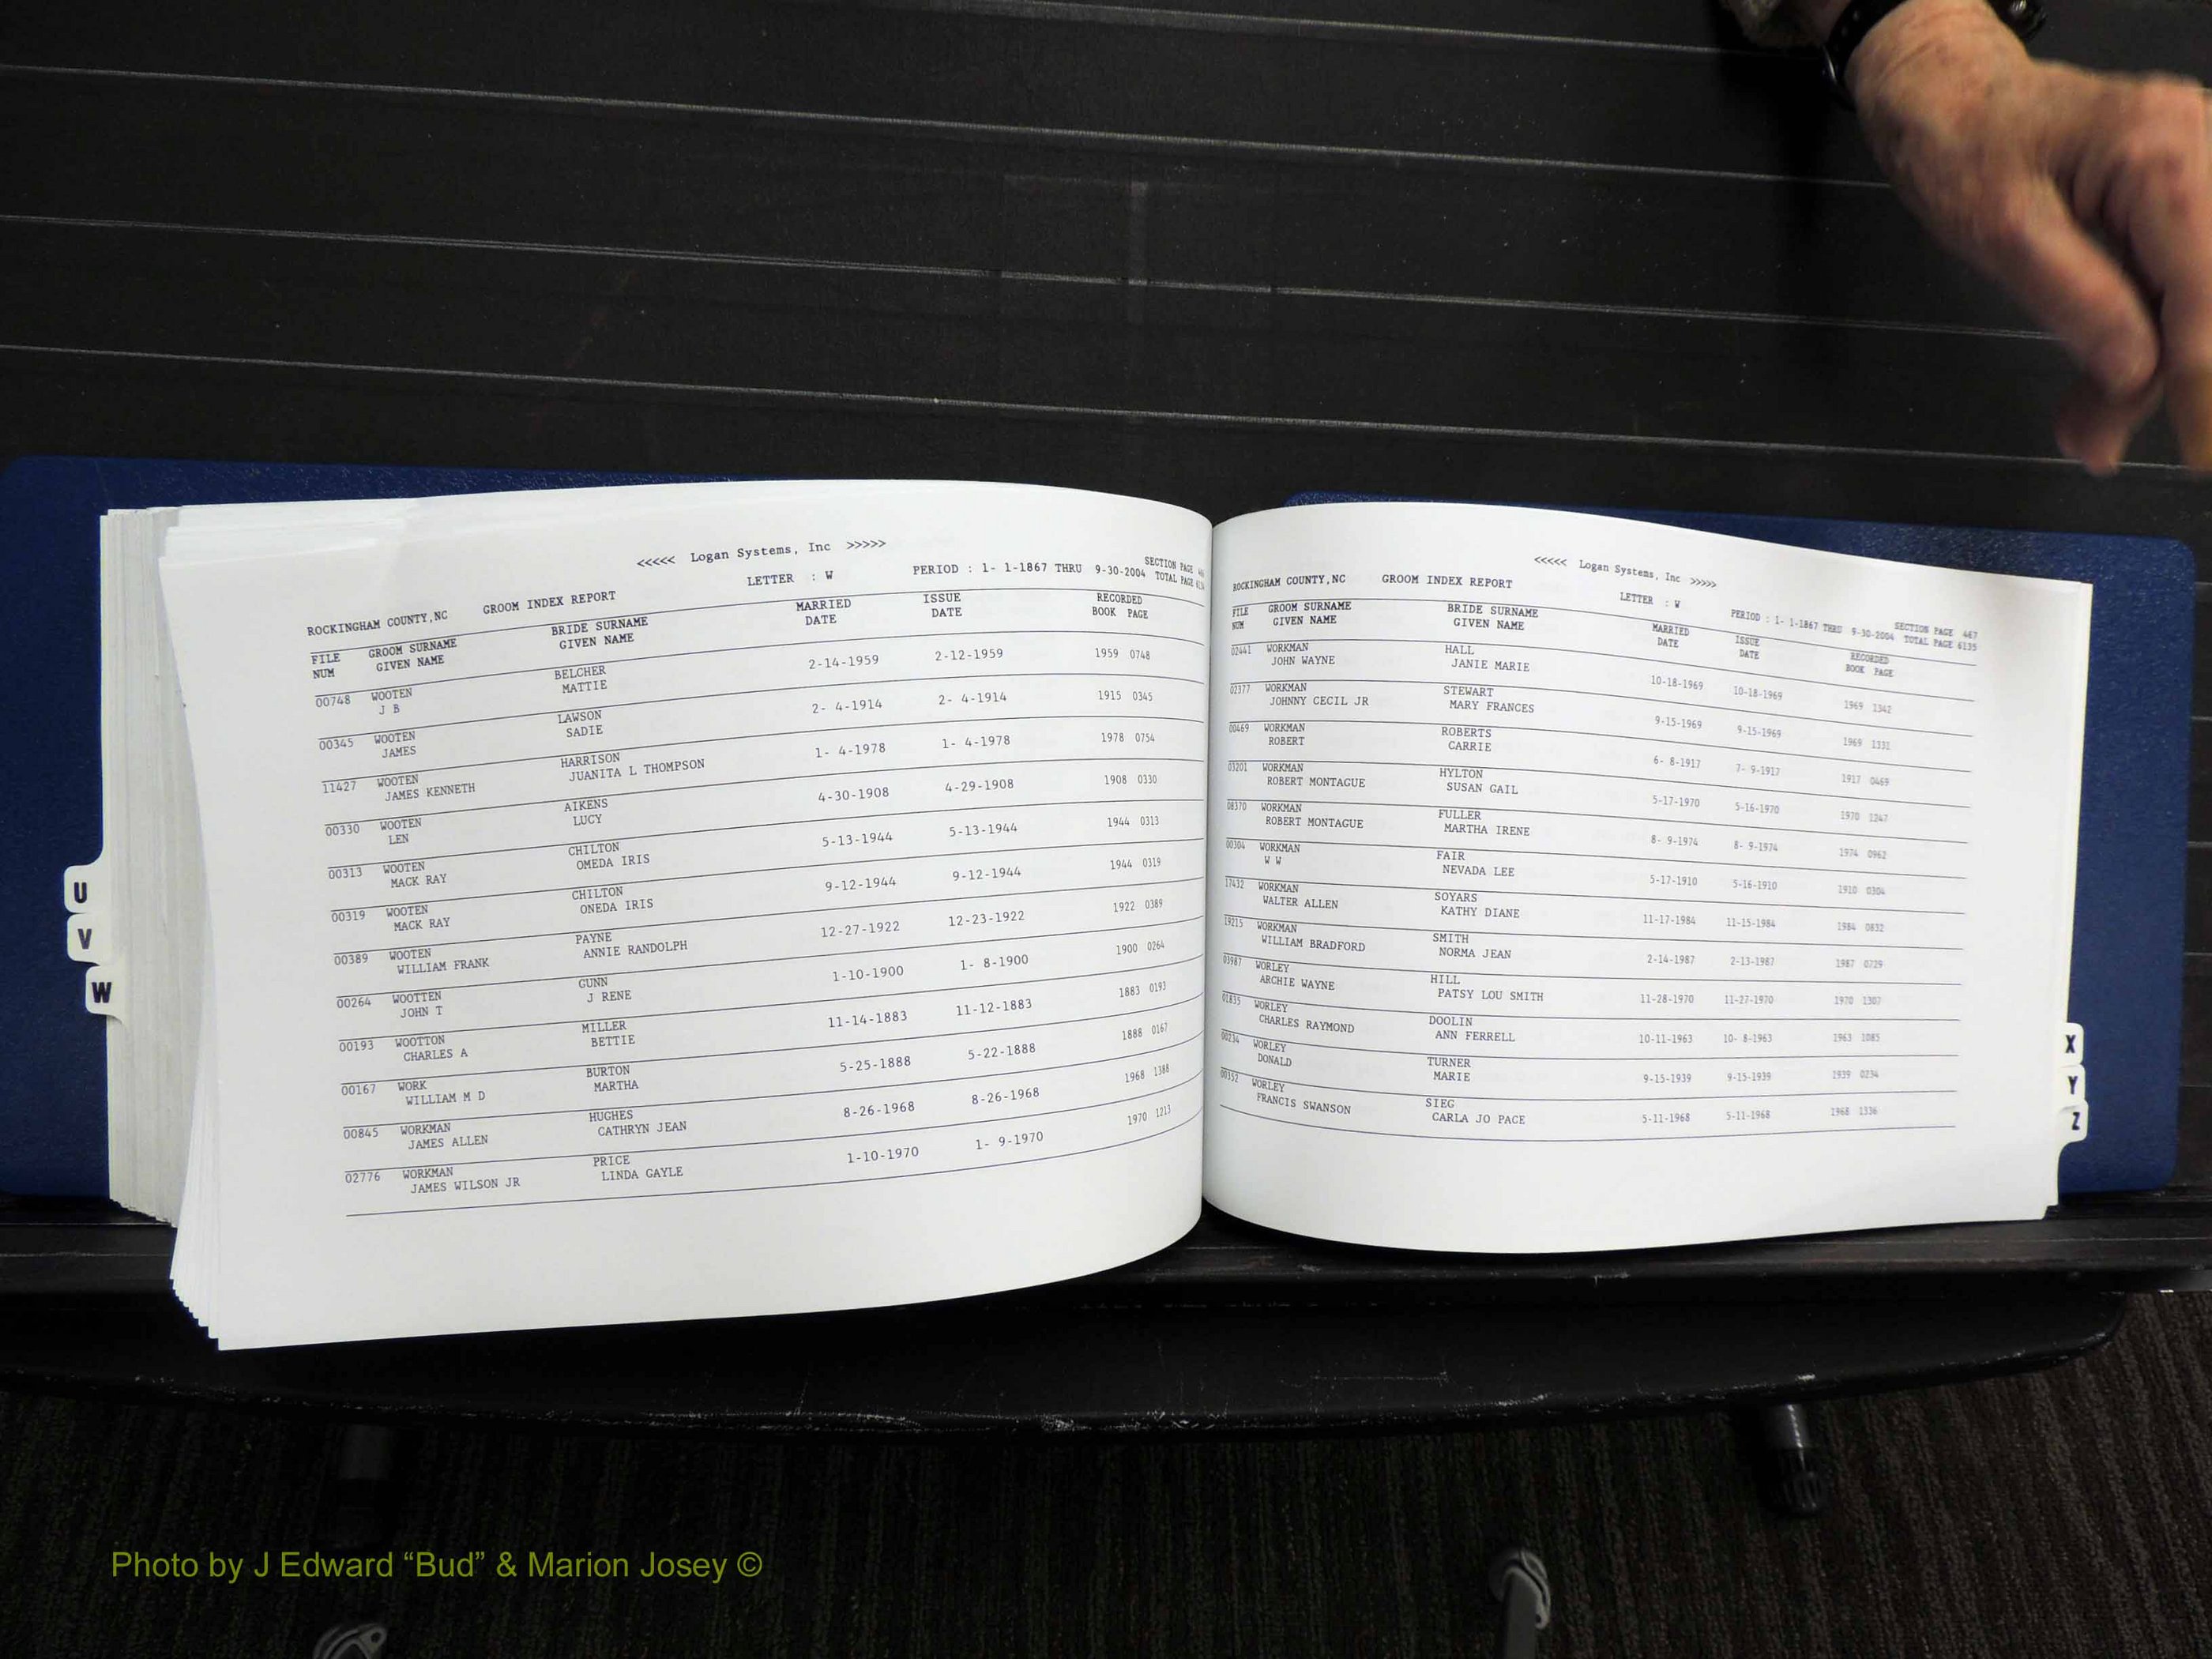 <<<<< Logan Systems, Inc >>>>>
SECTION PAGE
ROCKINGHAM COUNTY,NC GROOM INDEX REPORT LETTER : W PERIOD : 1- 1-1867 THRU 9-30-2004 TOTAL PAGE
FILE GROOM SURNAME BRIDE SURNAME MARRIED ISSUE RECORDED
NUM GIVEN NAME GIVEN NAME DATE DATE BOOK PAGE
00748 WOOTEN BELCHER 2-14-1959 2-12-1959 1959 0748
J B MATTIE
00345 WOOTEN LAWSON 2- 4-1914 2- 4-1914 1915 0345
JAMES SADIE
11427 WOOTEN HARRISON 1- 4-1978 1- 4-1978 1978 0754
JAMES KENNETH JUANITA L THOMPSON
00330 WOOTEN AIKENS 4-30-1908 4-29-1908 1908 0330
LEN LUCY
00313 WOOTEN CHILTON 5-13-1944 5-13-1944 1944 0313
MACK RAY OMEDA IRIS
00319 WOOTEN CHILTON 9-12-1944 9-12-1944 1944 0319
MACK RAY ONEDA IRIS
00389 WOOTEN PAYNE 12-27-1922 12-23-1922 1922 0389
WILLIAM FRANK ANNIE RANDOLPH
00264 WOOTTEN GUNN 1-10-1900 1- 8-1900 1900 0264
JOHN T J RENE
00193 WOOTTON MILLER 11-14-1883 11-12-1883 1883 0193
CHARLES A BETTIE
00167 WORK BURTON 5-25-1888 5-22-1888 1888 0167
WILLIAM M D MARTHA
00845 WORKMAN HUGHES 8-26-1968 8-26-1968 1968 1388
JAMES ALLEN CATHRYN JEAN
02776 WORKMAN PRICE 1-10-1970 1- 9-1970 1970 1213
JAMES WILSON JR LINDA GAYLE
<<<<< Logan Systems, Inc >>>>>
SECTION PAGE 467
ROCKINGHAM COUNTY,NC GROOM INDEX REPORT LETTER : W PERIOD : 1- 1-1867 THRU 9-30-2004 TOTAL PAGE 6135
FILE GROOM SURNAME BRIDE SURNAME MARRIED ISSUE RECORDED
NUM GIVEN NAME GIVEN NAME DATE DATE BOOK PAGE
02441 WORKMAN HALL 10-18-1969 10-18-1969 1969 1342
JOHN WAYNE JANIE MARIE
02377 WORKMAN STEWART 9-15-1969 9-15-1969 1969 1331
JOHNNY CECIL JR MARY FRANCES
00469 WORKMAN ROBERTS 6- 8-1917 7- 9-1917 1917 0469
ROBERT CARRIE
03201 WORKMAN HYLTON 5-17-1970 5-16-1970 1970 1247
ROBERT MONTAGUE SUSAN GAIL
08370 WORKMAN FULLER 8- 9-1974 8- 9-1974 1974 0962
ROBERT MONTAGUE MARTHA IRENE
00304 WORKMAN FAIR 5-17-1910 5-16-1910 1910 0304
W W NEVADA LEE
17432 WORKMAN SOYARS 11-17-1984 11-15-1984 1984 0832
WALTER ALLEN KATHY DIANE
19215 WORKMAN SMITH 2-14-1987 2-13-1987 1987 0729
WILLIAM BRADFORD NORMA JEAN
03987 WORLEY HILL 11-28-1970 11-27-1970 1970 1307
ARCHIE WAYNE PATSY LOU SMITH
01835 WORLEY DOOLIN 10-11-1963 10- 8-1963 1963 1085
CHARLES RAYMOND ANN FERRELL
00234 WORLEY TURNER 9-15-1939 9-15-1939 1939 0234
DONALD MARIE
00352 WORLEY SIEG 5-11-1968 5-11-1968 1968 1336
FRANCIS SWANSON CARLA JO PACE
U
V
W
X
Y
Z
Photo by J Edward “Bud” & Marion Josey ©